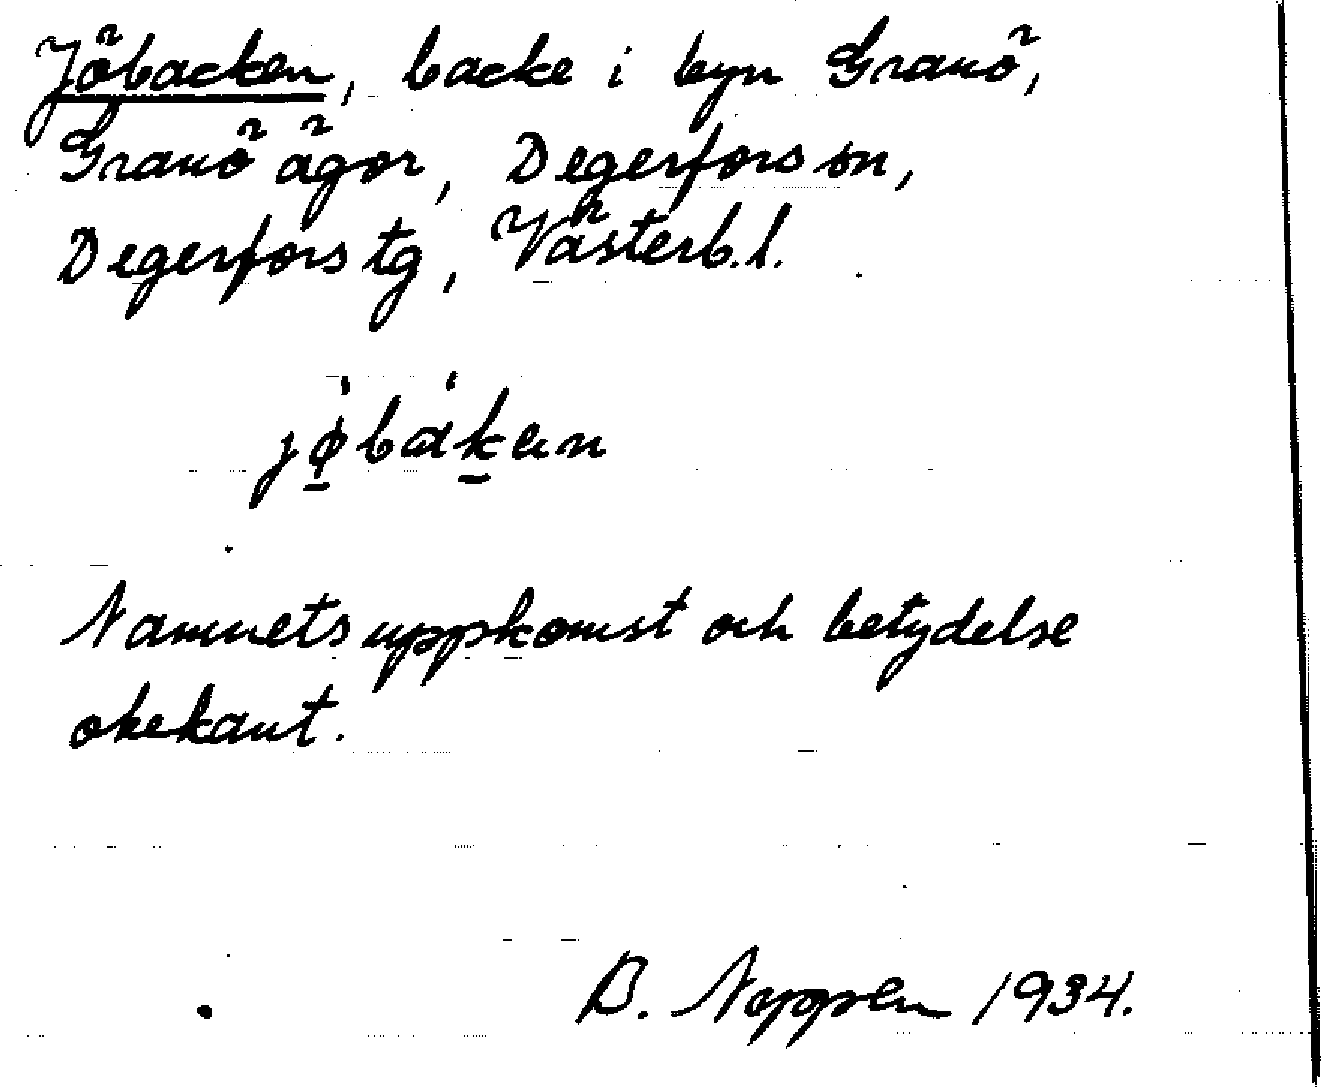 Jöbacken, backe i byn Granö,
Granö ägor, Degerfors sn,
Degerfors tg, Västerb. l.
jø̱̍ba̍ḵen
Namnets uppkomst och betydelse
obekant.
B. 1934.